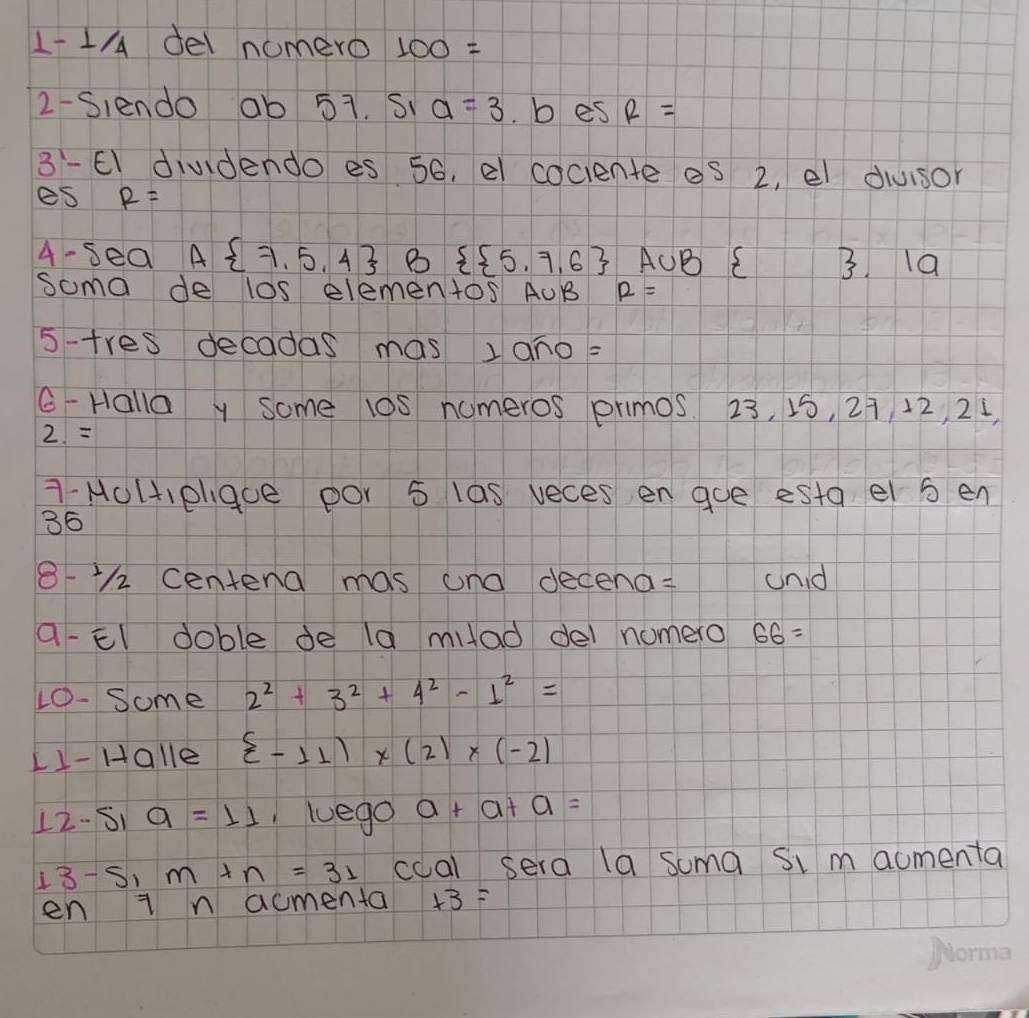 1- 1/4 del numero 100 =
2- Siendo ab 57. Si a = 3. b es R =
3- El dividendo es 56, el cociente es 2, el divisor
es R =
4- Sea A {7.5.4} B {{5.7.6} AUB {      }. la
Suma de los elementos AUB R =
5- tres decadas mas 1 año =
6- Halla y sume los numeros primos. 23, 15, 27, 12, 21,
2. =
7- Multiplique por 5 las veces en que esta el 5 en
35
8- 1/2 centena mas una decena =      unid
9- El doble de la mitad del numero 66 =
10- Sume 2² + 3² + 4² - 1² =
11- Halle {-11) x (2) x (-2)
12- Si a = 11, luego a + a + a =
13- Si m + n = 31 cual sera la suma si m aumenta
en 7 n aumenta +3 =
Norma